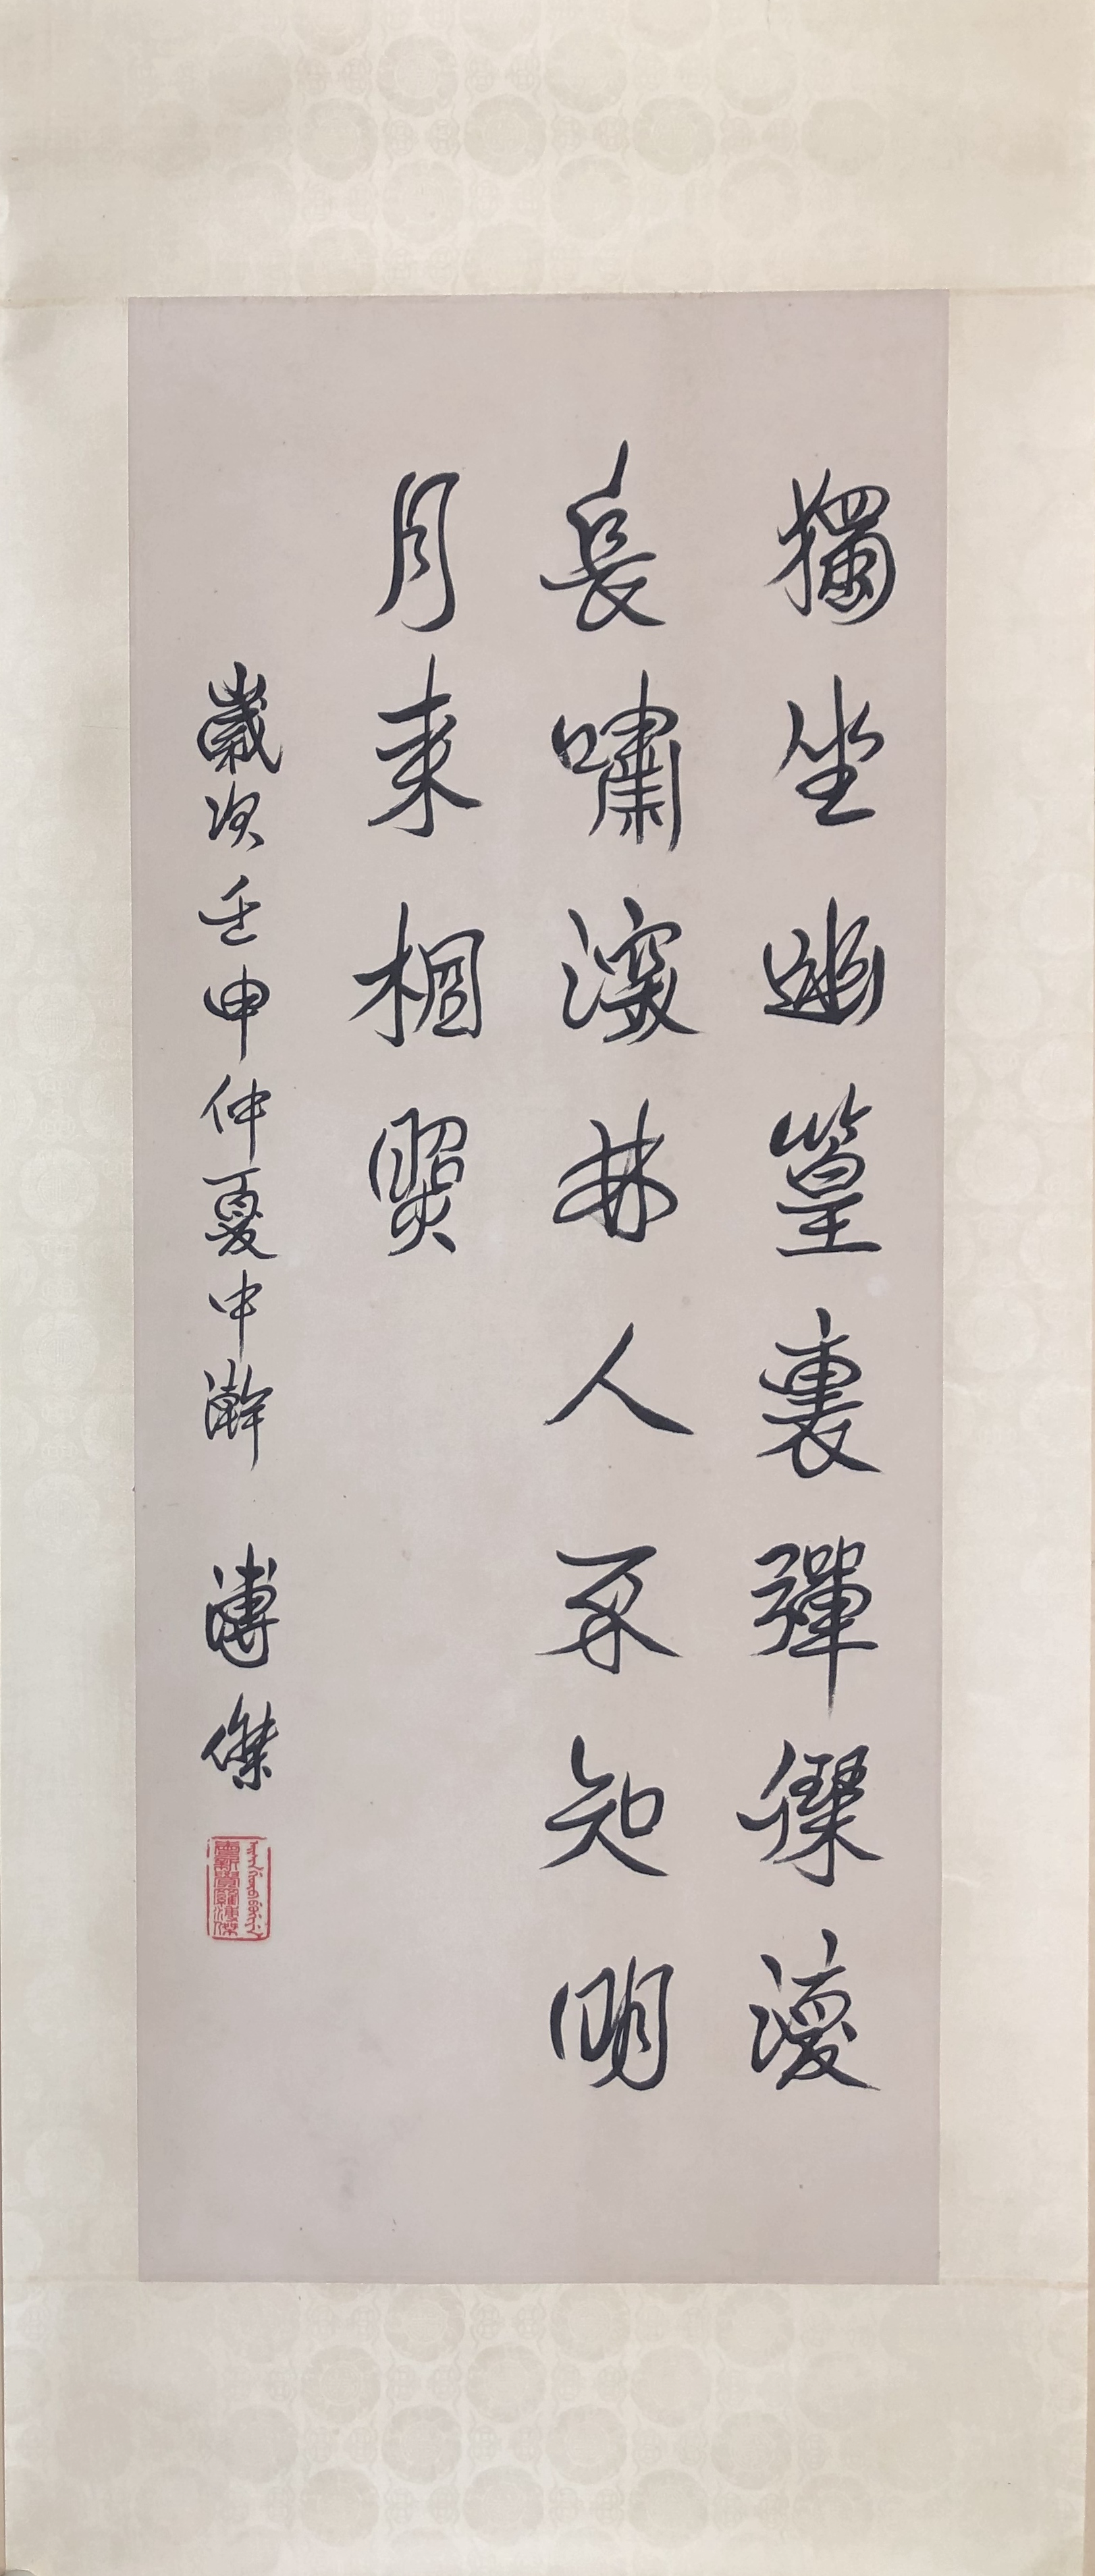 獨坐幽篁裏彈琴復
長嘯深林人不知明
月來相照
歲次壬申仲夏中澣 溥傑
愛新覺羅溥傑